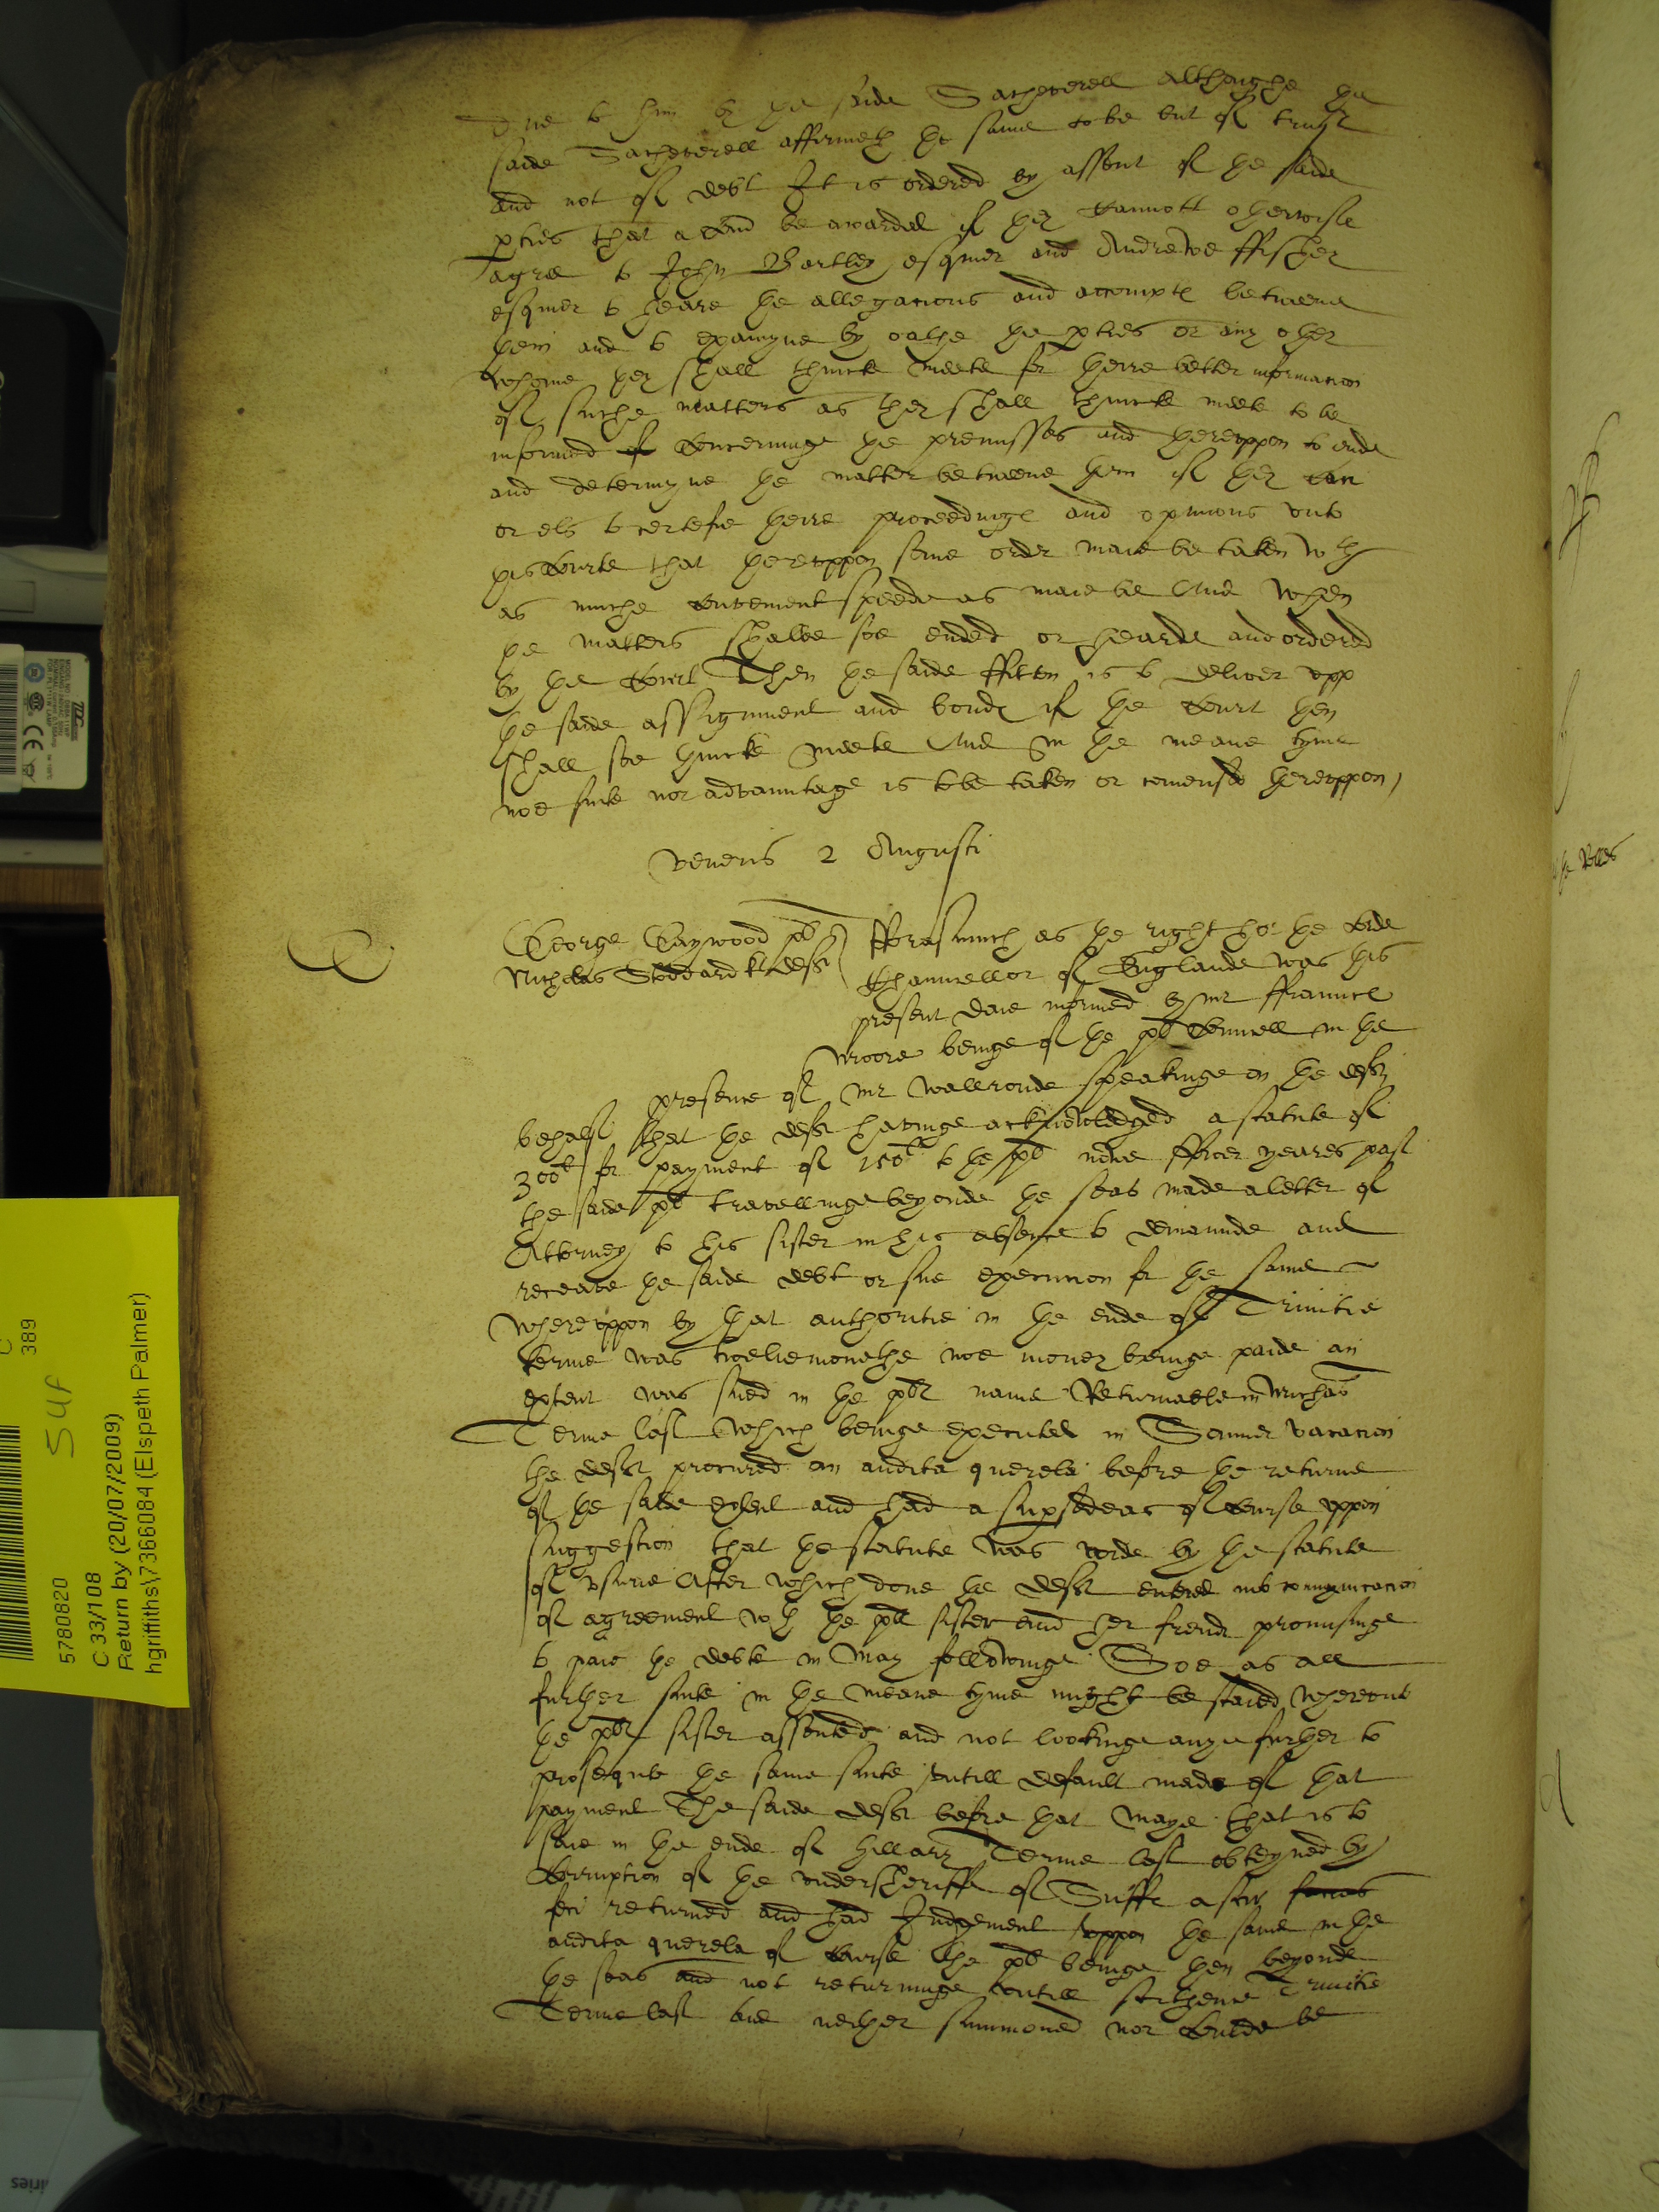 due to him by the saide Sacheverell Althoughe the
saide Sacheverell affirmeth the same to be but of trust
and not of debt It is ordered by assent of the saide
pties that a Comd be awarded if they cannott otherwise
agree to John Bartley esquier and Andrewe ffisher
esquier to heare the allegacions and accompte betweene
them and to examyne by oathe the pties or any other
whome they shall thincke meete for theire better informacion
of suche matters as they shall thincke meete to be
informed of concerninge the premisses and thereuppon to ende
and determyne the matter betweene them if they can
or els to certefie theire proceedinge and opinions unto
this Courte that thereuppon some order maie be taken wth
as muche convenient speede as maie be And when
the matters shalbe soe ended or hearde and ordered
by the Court Then the saide ffitton is to deliver upp
the saide assignment and bonde if the Court then
shall soe thincke meete And in the meane tyme
noe suite nor advauntage is to be taken or comensed thereuppon,
Veneris 2 Augusti
George Gaywood pl
Nicholas Stoddard kt deft
fforasmuch as the right ho: the Lorde
Chauncellor of Englande was this
present daie informed by mr ffrauncis
Moore beinge of the pl Councell in the
presence of mr Wallronde speakinge on the defts
behalf that the deft havinge acknowledged a statute of
300l for payment of 150l to the pl nowe ffower yeares past
the saide pl travellinge beyonde the seas made a letter of
Attorney to his sister in his absence to demaunde and
receave the saide debt or sue execucion for the same
whereuppon by that authoritie in the ende of Trinitie
terme was twelvemonethe noe money beinge paide an
extent was sued in the pls name Returnable in Michas
Terme last which beinge executed in Somer vacacion
the deft procured an audita querela before the returne
of the saide extent and had a supsedeas of course uppon
suggestion that the statute was voide by the statute
of usurie After which done the deft entred into comunicacion
of agreement wth the pls sister and her frende promisinge
to paie the debte in May followinge Soe as all
further suite in the meane tyme might be staied whereunto
the pls sister assented and not lookinge anye further to
prosequte the same suite untill default made of that
payment The saide deft before that Maye that is to
saie in the ende of Hillary Terme last obteyned by
Corruption of the undersheriffe of Suff a scir facias
feci returned and had Judgement uppon the same in the
audita querela of course the pl beinge then beyonde
the seas and not returninge untill sithence Trinitie
Terme last and nether summoned nor coulde be
5780820
C 33/108
Return by (20/07/2009)
hgriffiths\7366084 (Elspeth Palmer)
C
389
SUF